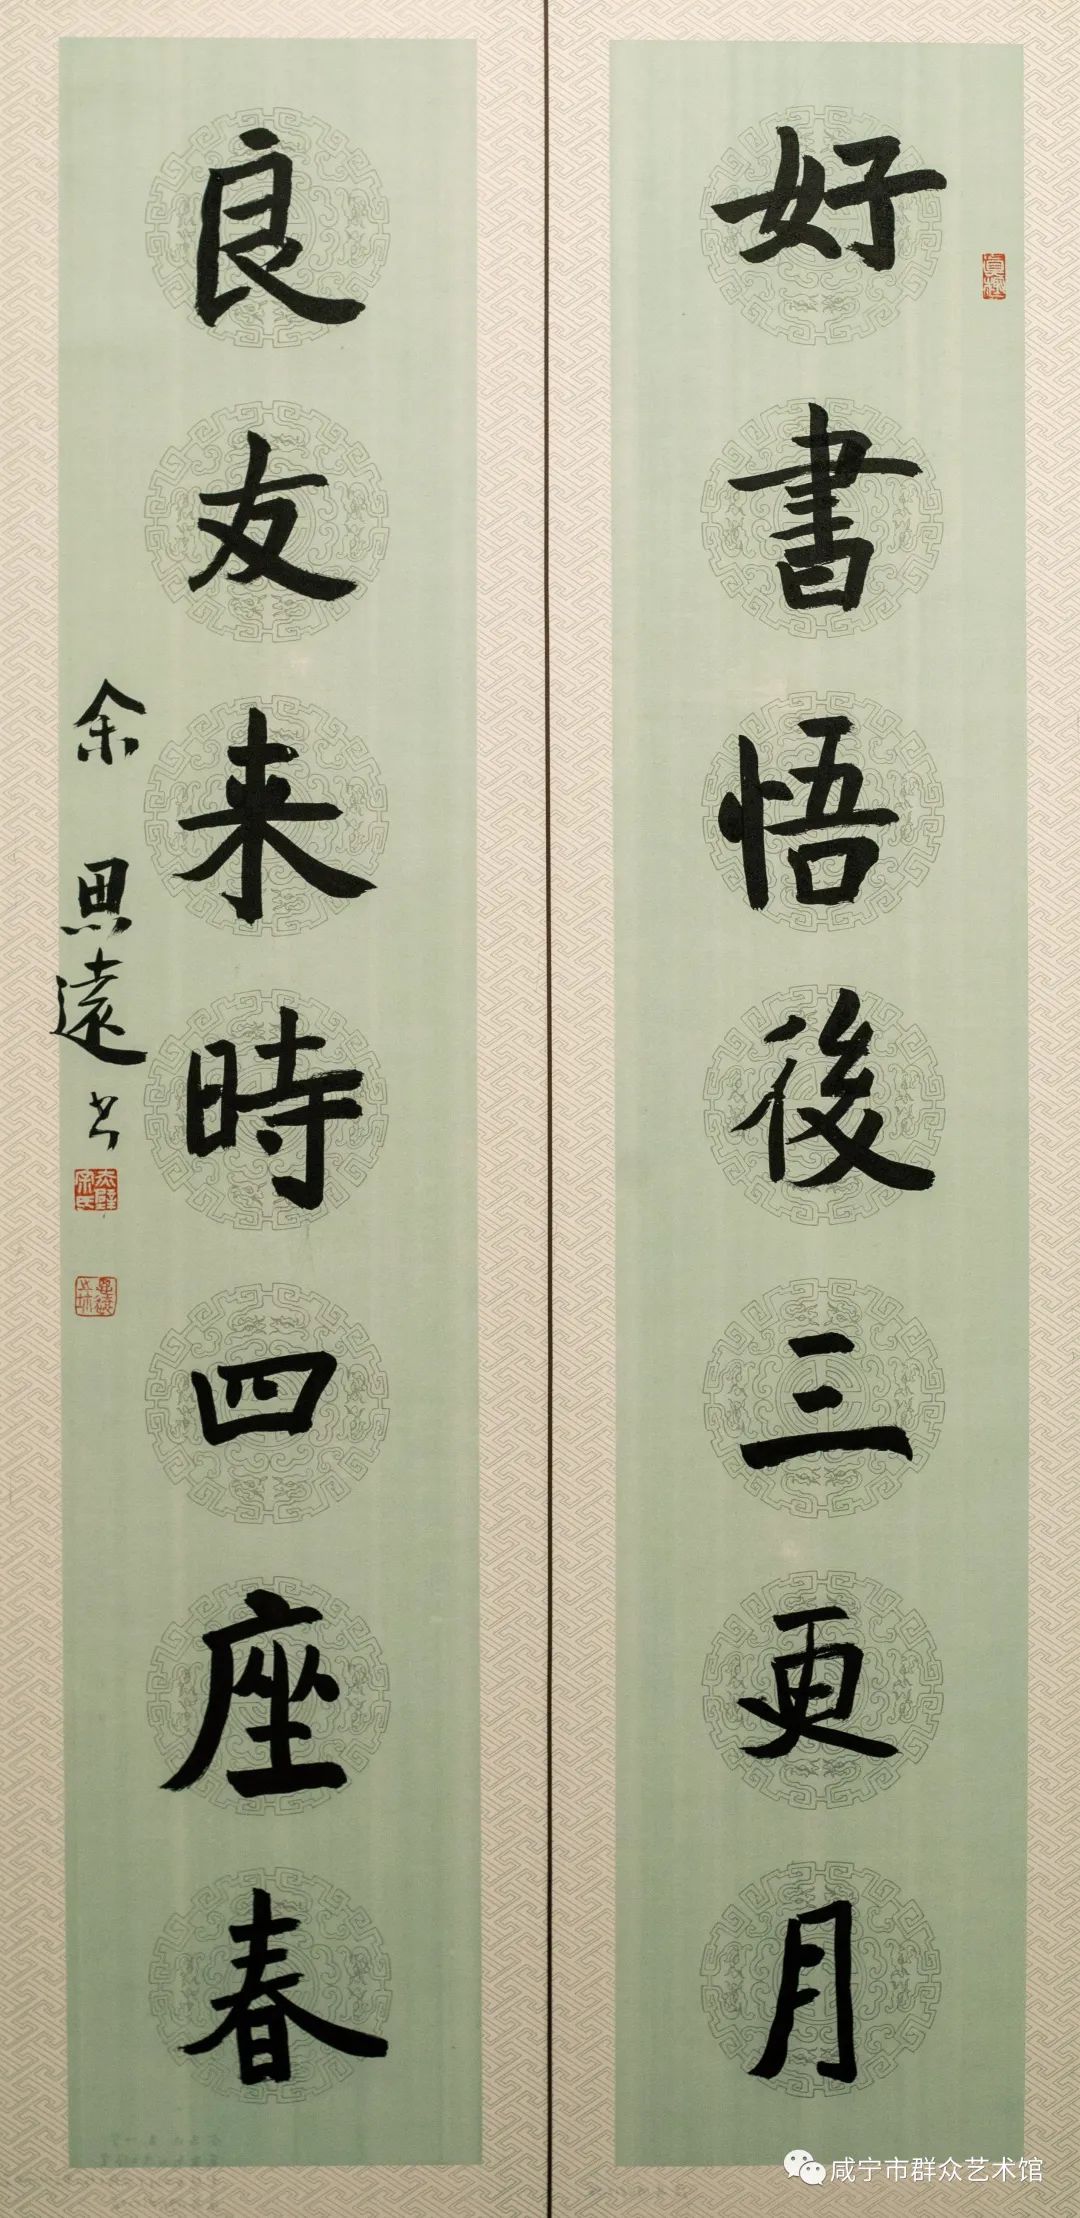 好書悟後三更月
良友来時四座春
余思遠书
赤壁余氏
咸宁市群众艺术馆